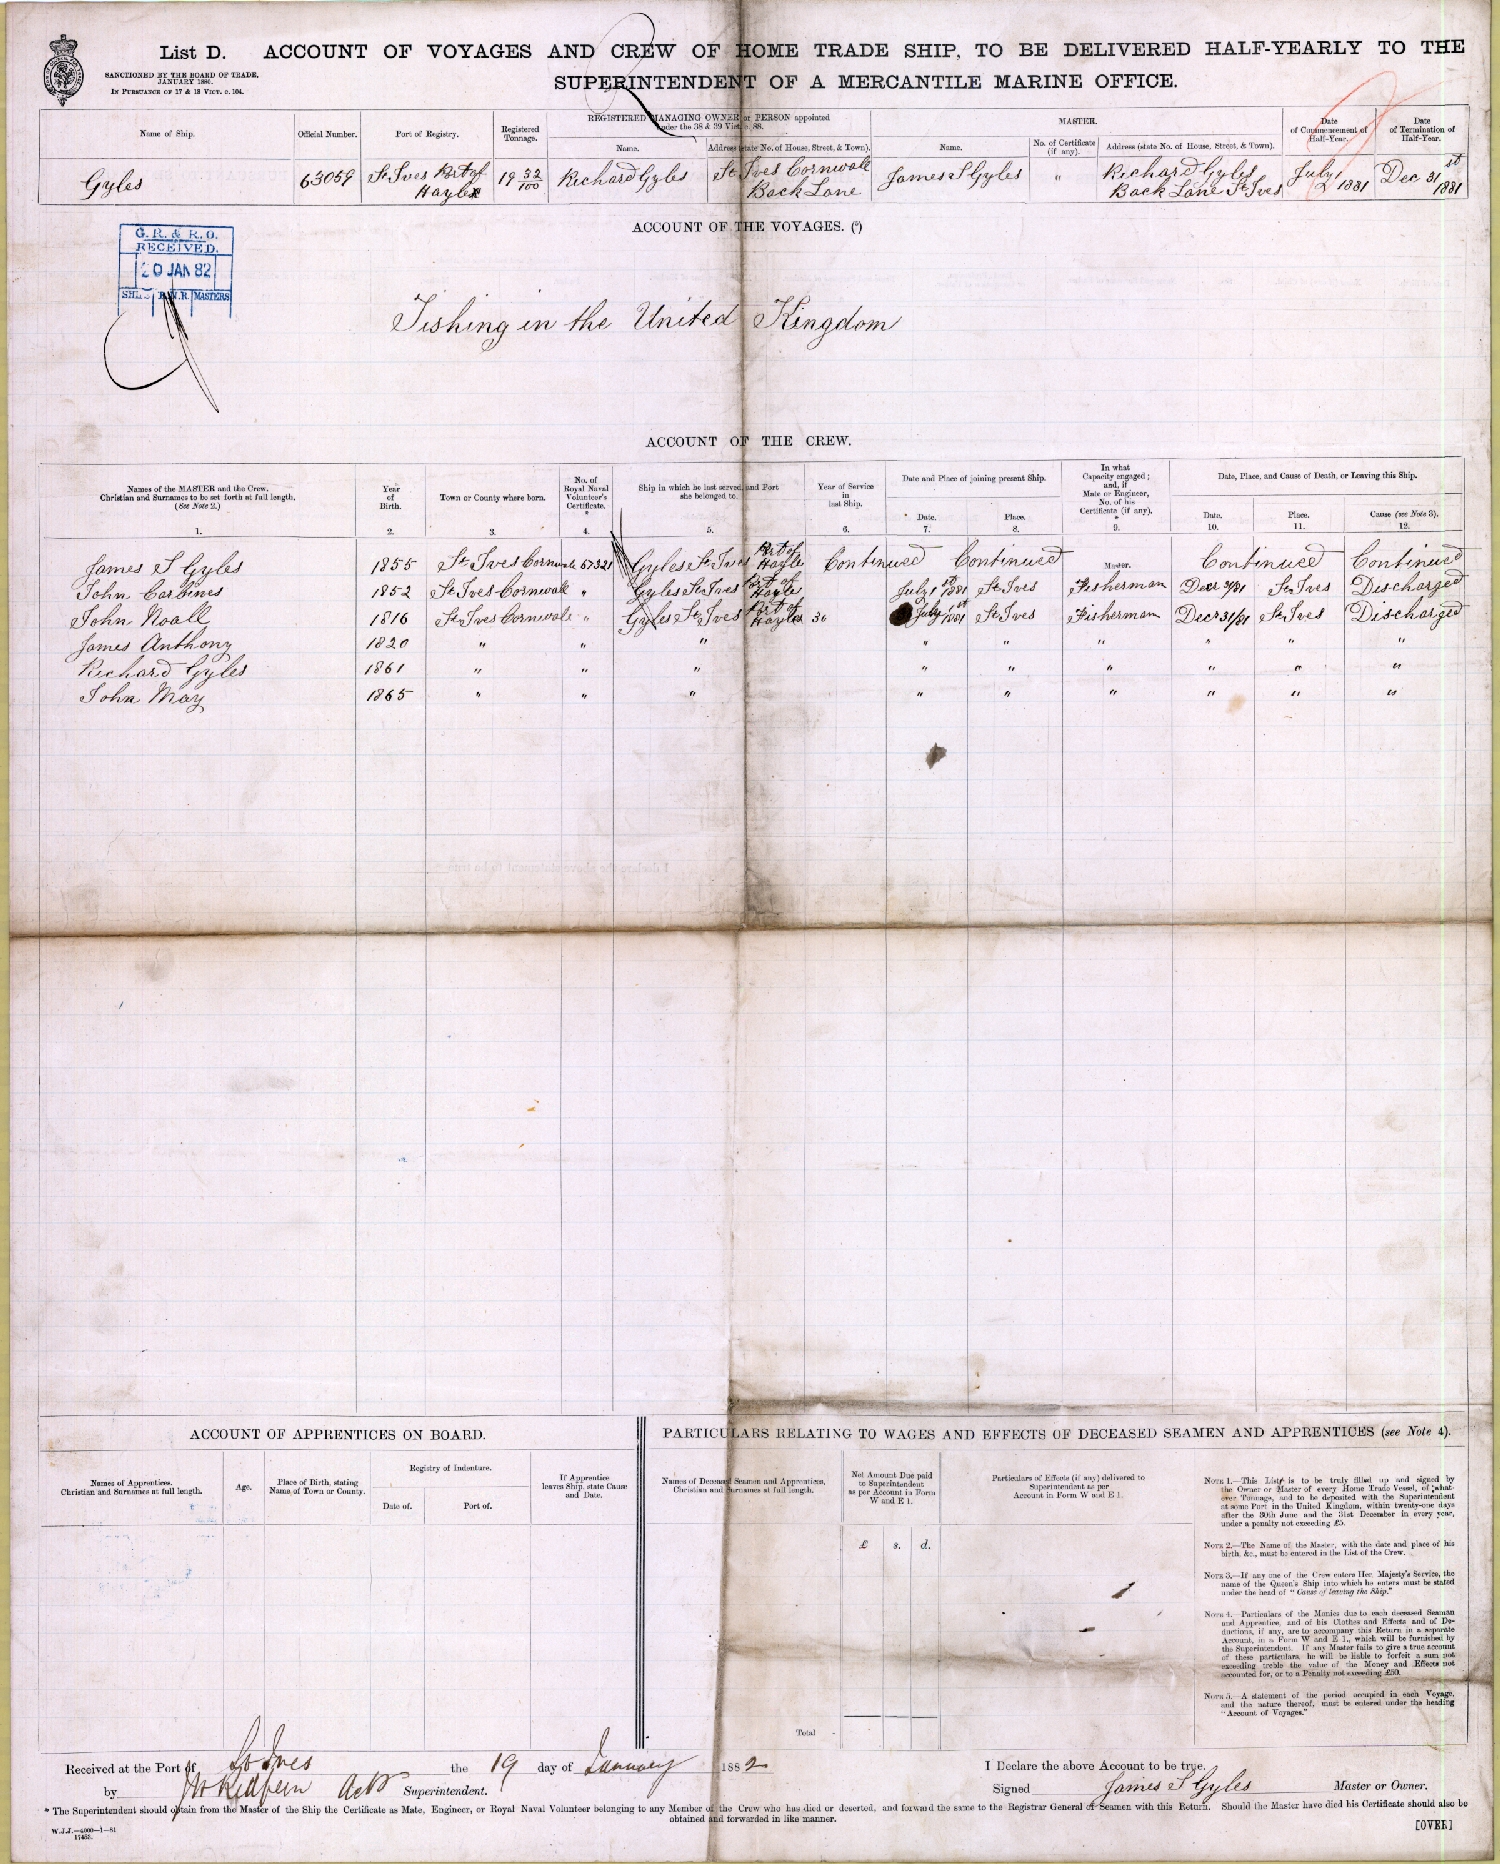 List D. ACCOUNT OF VOYAGES AND CREW OF HOME TRADE SHIP, TO BE DELIVERED HALF-YEARLY TO THE
SUPERINTENDENT OF A MERCANTILE MARINE OFFICE.
SANCTIONED BY THE BOARD OF TRADE,
JANUARY 1880.
IN PURSUANCE OF 17 & 18 VICT. c. 104.
Name of Ship. Official Number. Port of Registry. Registered Tonnage. REGISTERED MANAGING OWNER or PERSON appointed under the 38 & 39 Vict. c. 88. MASTER. Date of Commencement of Half-Year. Date of Termination of Half-Year.
Name. Address (state No. of House, Street, & Town). Name. No. of Certificate (if any). Address (state No. of House, Street, & Town).
Gyles 63059 St Ives Port of Hayle 19 32/100 Richard Gyles St Ives Cornwall Back Lane James S Gyles " Richard Gyles Back Lane St Ives July 1 1881 Dec 31st 1881
ACCOUNT OF THE VOYAGES. (5)
G. R. & R. O.
RECEIVED.
20 JAN 82
SHIPS R.N.R. MASTERS
Fishing in the United Kingdom
ACCOUNT OF THE CREW.
Names of the MASTER and the Crew, Christian and Surnames to be set forth at full length, (See Note 2.) Year of Birth. Town or County where born. No. of Royal Naval Volunteer's Certificate. * Ship in which he last served, and Port she belonged to. Year of Service in last Ship. Date and Place of joining present Ship. In what Capacity engaged; and, if Mate or Engineer, No. of his Certificate (if any). * Date, Place, and Cause of Death, or Leaving this Ship.
Date. Place. Date. Place. Cause (see Note 3).
1. 2. 3. 4. 5. 6. 7. 8. 9. 10. 11. 12.
James S Gyles 1855 St Ives Cornwale 57321 Gyles St Ives Port of Hayle Continued Continued Master. Continued Continued
John Carbines 1852 St Ives Cornwall " Gyles St Ives Port of Hayle July 1st 1881 St Ives Fisherman Decr 31/81 St Ives Discharged
John Noall 1816 St Ives Cornwale " Gyles St Ives Port of Hayle 30 July 1st 1881 St Ives Fisherman Decr 31/81 St Ives Discharged
James Anthony 1820 " " " " " " " " "
Richard Gyles 1861 " " " " " " " " "
John May 1865 " " " " " " " " "
ACCOUNT OF APPRENTICES ON BOARD.
Names of Apprentices. Christian and Surnames at full length. Age. Place of Birth, stating Name of Town or County. Registry of Indenture. If Apprentice leaves Ship, state Cause and Date.
Date of. Port of.
PARTICULARS RELATING TO WAGES AND EFFECTS OF DECEASED SEAMEN AND APPRENTICES (see Note 4).
Names of Deceased Seamen and Apprentices, Christian and Surnames at full length. Net Amount Due paid to Superintendent as per Account in Form W and E 1. Particulars of Effects (if any) delivered to Superintendent as per Account in Form W and E 1.
£ s. d.
Total
NOTE 1.—This List is to be truly filled up and signed by
the Owner or Master of every Home Trade Vessel, of whatever
Tonnage, and to be deposited with the Superintendent
at some Port in the United Kingdom, within twenty-one days
after the 30th June and the 31st December in every year,
under a penalty not exceeding £5.
NOTE 2.—The Name of the Master, with the date and place of his
birth, &c., must be entered in the List of the Crew.
NOTE 3.—If any one of the Crew enters Her Majesty's Service, the
name of the Queen's Ship into which he enters must be stated
under the head of "Cause of leaving the Ship."
NOTE 4.—Particulars of the Monies due to each deceased Seaman
and Apprentice, and of his Clothes and Effects and of Deductions,
if any, are to accompany this Return in a separate
Account, in a Form W and E 1., which will be furnished by
the Superintendent. If any Master fails to give a true account
of these particulars, he will be liable to forfeit a sum not
exceeding treble the value of the Money and Effects not
accounted for, or to a Penalty not exceeding £50.
NOTE 5.—A statement of the period occupied in each Voyage,
and the nature thereof, must be entered under the heading
"Account of Voyages."
Received at the Port of St Ives the 19 day of January 1882
by Superintendent.
I Declare the above Account to be true.
Signed James S Gyles Master or Owner.
* The Superintendent should obtain from the Master of the Ship the Certificate as Mate, Engineer, or Royal Naval Volunteer belonging to any Member of the Crew who has died or deserted, and forward the same to the Registrar General of Seamen with this Return. Should the Master have died his Certificate should also be
obtained and forwarded in like manner.
W.J.J.—4000—1—81
17463.
[OVER]